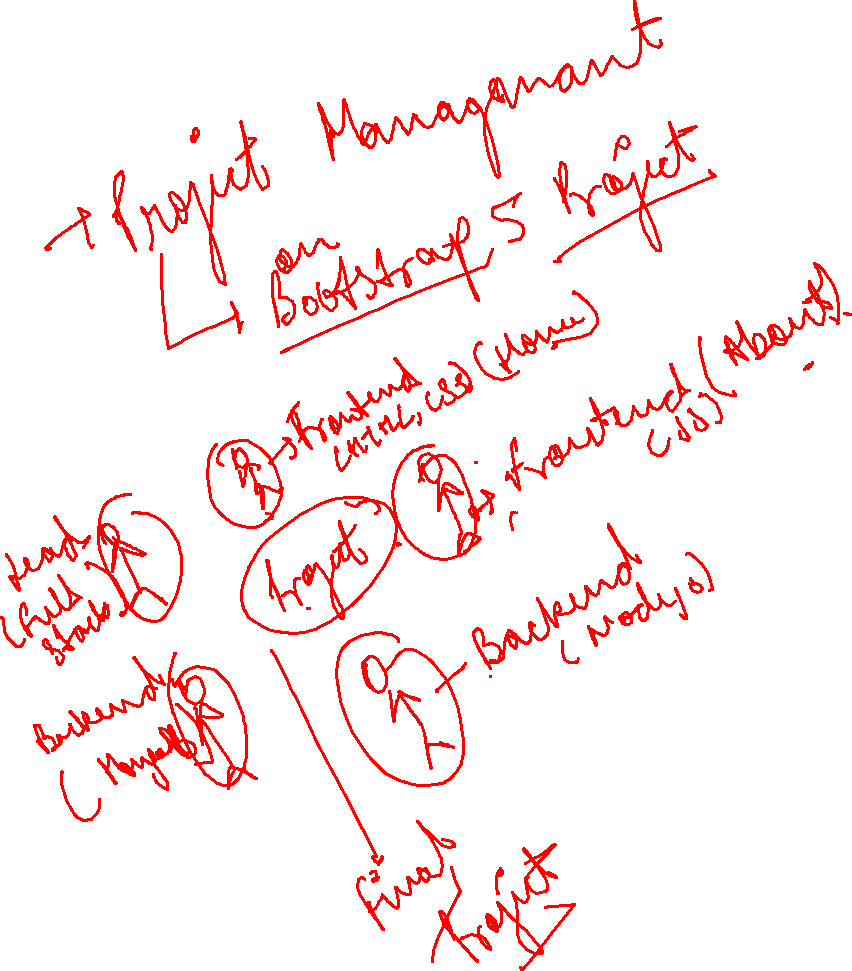 → Project Managmant
on
Bootstrap 5 Project
Frontend
(HTML, CSS) (Home)
Frontend (About).
(JS)
Project
Lead
(Full
Stack)
Backend
(Nodejs)
Backend
(MongoDB)
Final
Project